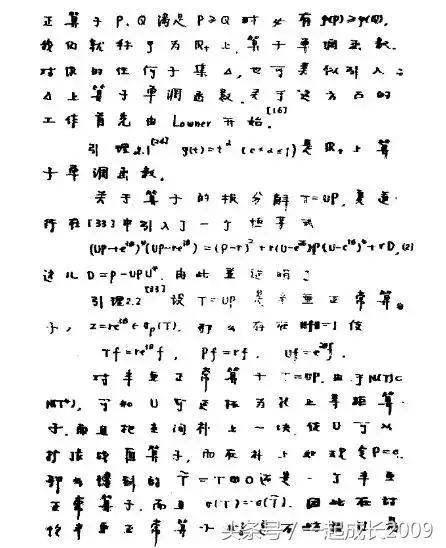 正算子 P、Q 满足 P≥Q 时必有 φ(P)≥φ(Q),
我们就称 φ 为 R₊ 上算子单调函数.
对 的任何子集 Δ, 也可类似引入
Δ 上算子单调函数. 关于这方面的
工作首先由 Lowner 开始.[16]
引理2.1 φ(t)=t^α 是 R₊ 上算
子单调函数.
关于算子的极分解 T=UP, 夏道
行在[33]中引入了一个恒等式
(UP-re^{iθ})*(UP-re^{iθ})=(P-r)²+r(U-e^{iθ})*P(U-e^{iθ})+rD, (2)
这儿 D=P-UPU*. 由此并证明了
引理2.2[33] 设 T=UP 是半亚正常算
子, z=re^{iθ}∈σp(T). 那么存在 ‖f‖=1 使
Tf=re^{iθ}f, Pf=rf, Uf=e^{iθ}f.
对半亚正常算子 T=UP, 由于 N(T)⊂
N(T*), 可知 U 可延拓为 上等距算
子. 而且把空间补上一块, 使 U 可以
扩张成酉算子, 而在补上 规定 P=0.
那么得到的 T̃=T⊕0 还是一个半亚
正常算子, 而且 σ(T)=σ(T̃). 因此在讨
论半亚正常算子
头条号/一起成长2009